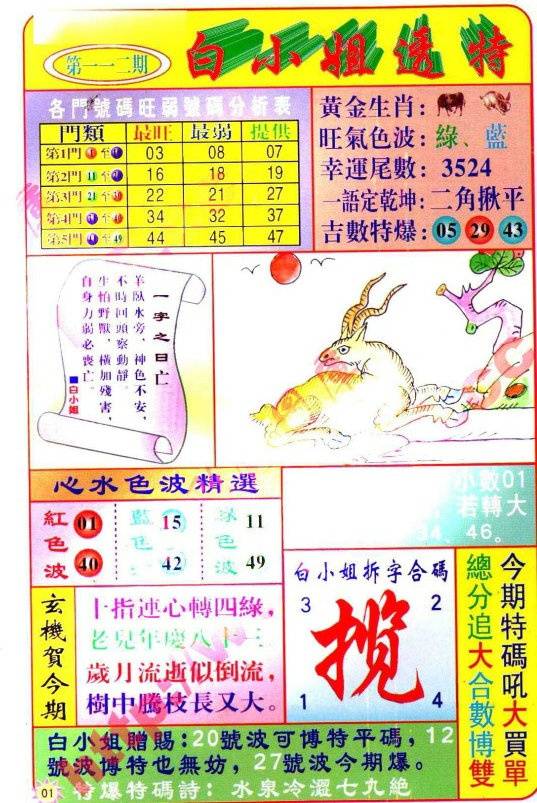 第一一二期
白小姐透特
各門號碼旺弱號碼分析表
門類 最旺 最弱 提供
第1門 至 03 08 07
第2門 11 至 16 18 19
第3門 21 至 22 21 27
第4門 至 34 32 37
第5門 至 49 44 45 47
黃金生肖：
旺氣色波：綠、藍
幸運尾數：3524
一語定乾坤：二角揪平
吉數特爆：05 29 43
一字之曰亡
羊臥水旁，神色不安，
不時回頭察動靜。
生怕野獸，橫加殘害，
自身力弱必喪亡。
■白小姐
心水色波精選
紅色波 01 40
藍色 15 42
綠色波 11 49
小數01
若轉大
34、46。
玄機賀今期
十指連心轉四綠，
老兒年慶八十三
歲月流逝似倒流，
樹中騰枝長又大。
白小姐拆字合碼
3 2
揽
1 4
今期特碼吼大買單
總分追大合數博雙
白小姐贈賜：20號波可博特平碼，12
號波博特也無妨，27號波今期爆。
特爆特碼詩：水泉冷澀七九絶
01